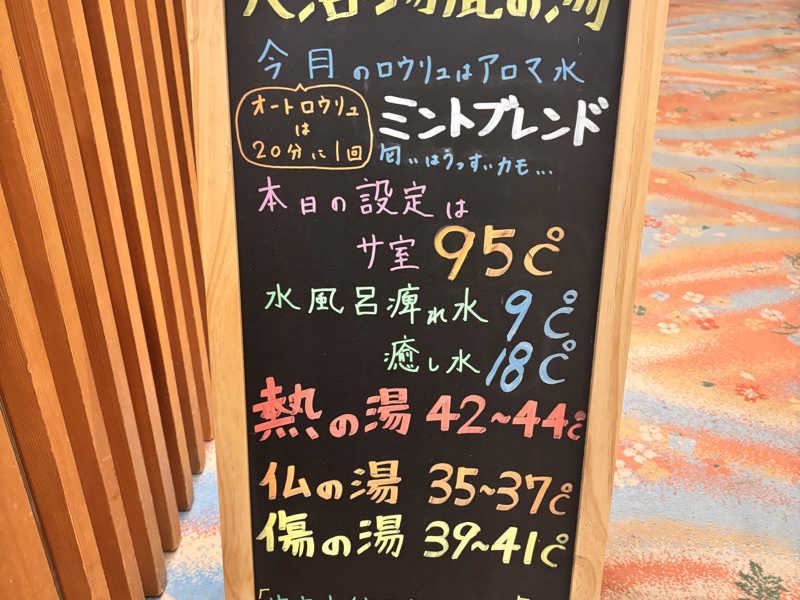 今月のロウリュはアロマ水
オートロウリュ
は
20分に1回
ミントブレンド
匂いはうっすぃカモ...
本日の設定は
サ室 95℃
水風呂痺れ水 9℃
癒し水 18℃
熱の湯 42~44℃
仏の湯 35~37℃
傷の湯 39~41℃